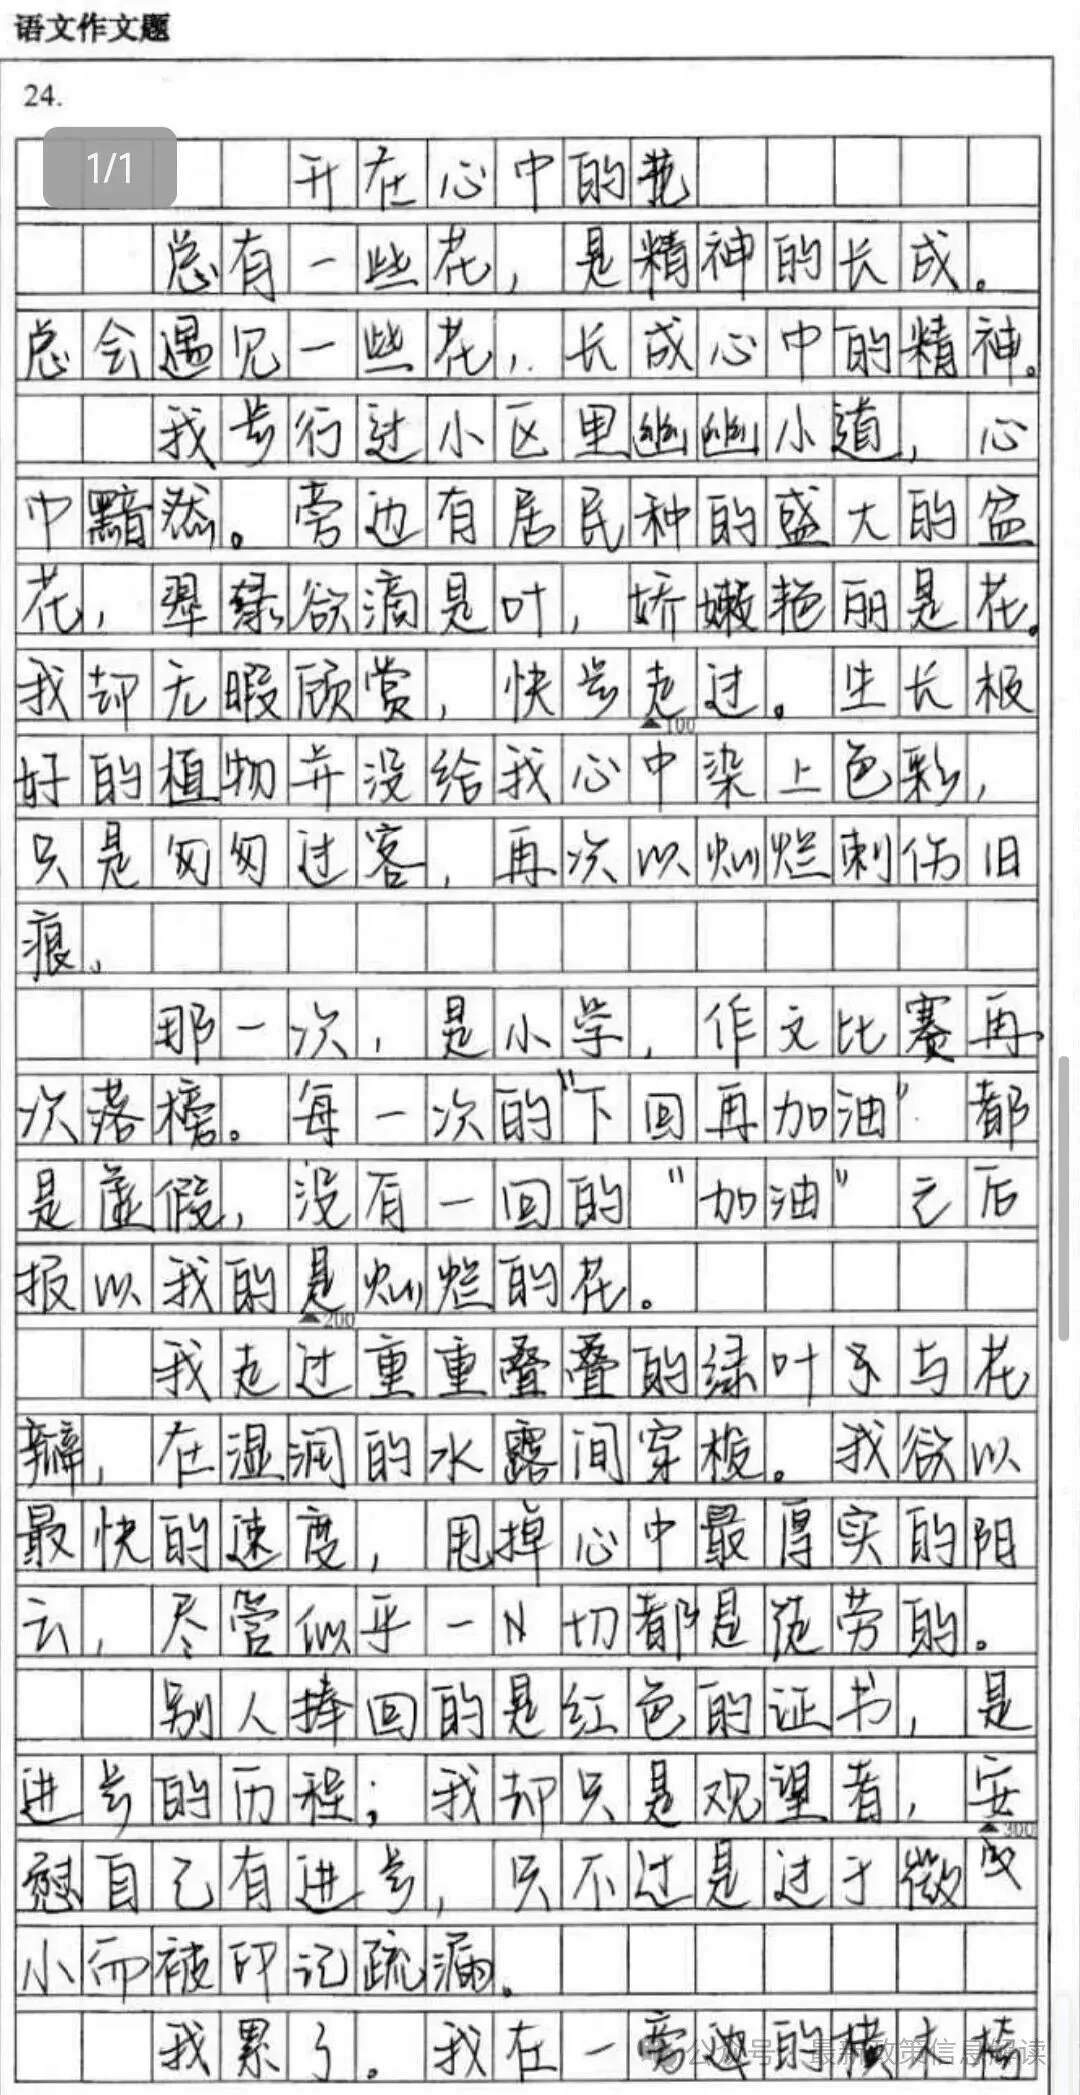 语文作文题
24.
1/1
开在心中的花
总有一些花，是精神的长成。
总会遇见一些花，长成心中的精神。
我步行过小区里幽幽小道，心
中黯然。旁边有居民种的盛大的盆
花，翠绿欲滴是叶，娇嫩艳丽是花。
我却无暇顾赏，快步走过。生长极
▲100
好的植物并没给我心中染上色彩，
只是匆匆过客，再次以灿烂刺伤旧
痕。
那一次，是小学，作文比赛再
次落榜。每一次的"下回再加油"都
是虚假，没有一回的"加油"之后
报以我的是灿烂的花。
▲200
我走过重重叠叠的绿叶与花
瓣，在湿润的水露间穿梭。我欲以
最快的速度，甩掉心中最厚实的阴
云，尽管似乎一切都是徒劳的。
别人捧回的是红色的证书，是
进步的历程；我却只是观望着，安
▲300
慰自己有进步，只不过是过于微
小而被印记疏漏。
我累了。我在一旁边的横木椅
公众号·最新政策信息解读